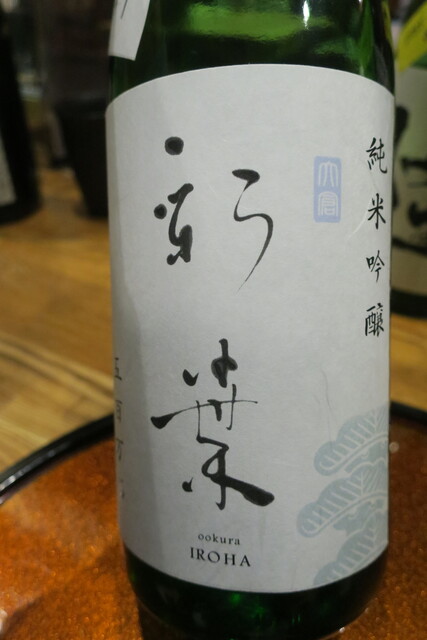 純米吟醸
大倉
彩葉
五百万
ookura
IROHA